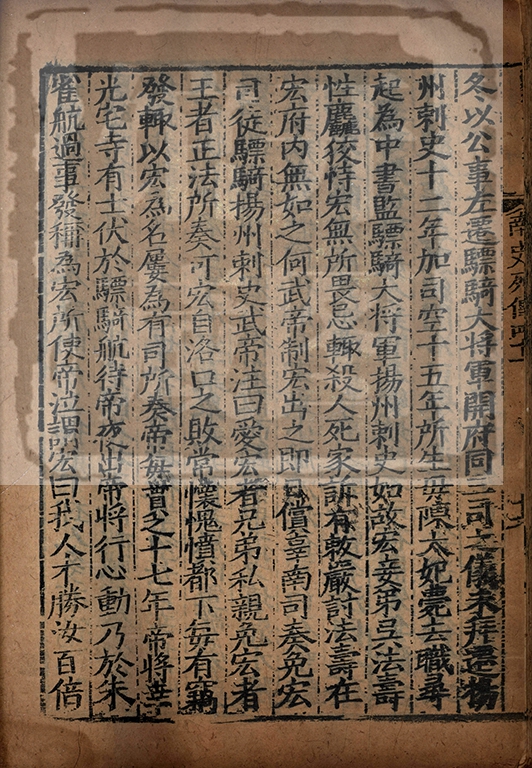 冬以公事左遷驃騎大將軍開府同三司之儀未拜遷揚
州刺史十二年加司空十五年所生母陳太妃薨去職尋
起為中書監驃騎大將軍揚州刺史如故宏妾弟吳法壽
性麤狡恃宏無所畏忌輙殺人死家訴有敕嚴討法壽在
宏府內無如之何武帝制宏出之即日償辜南司奏免宏
司徒驃騎揚州刺史武帝注曰愛宏者兄弟私親免宏者
王者正法所奏可宏自洛口之敗常懷愧憤都下每有竊
發輙以宏為名屢為有司所奏帝每貰之十七年帝將幸
光宅寺有士伏於驃騎航待帝夜出帝將行心動乃於朱
雀航過事發稱為宏所使帝泣謂宏曰我人才勝汝百倍
南史列傳